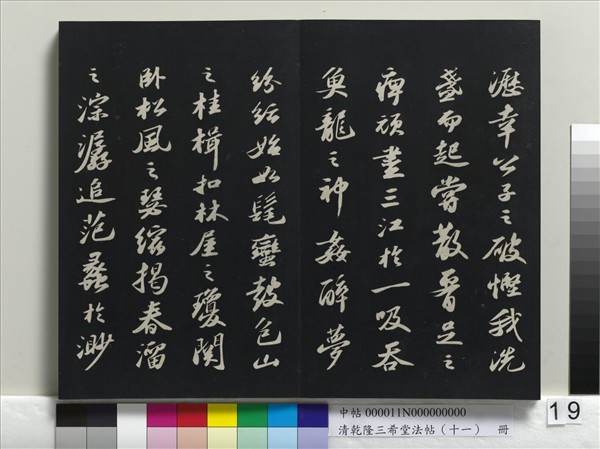 瀝幸公子之破慳我洗
盞而起嘗散腰足之
痺頑盡三江於一吸吞
魚龍之神姦醉夢
紛紜始如髦蠻鼓包山
之桂楫扣林屋之瓊関
臥松風之瑟縮揭春溜
之淙潺追范蠡於渺
中帖 000011N000000000
清乾隆三希堂法帖（十一） 冊
19